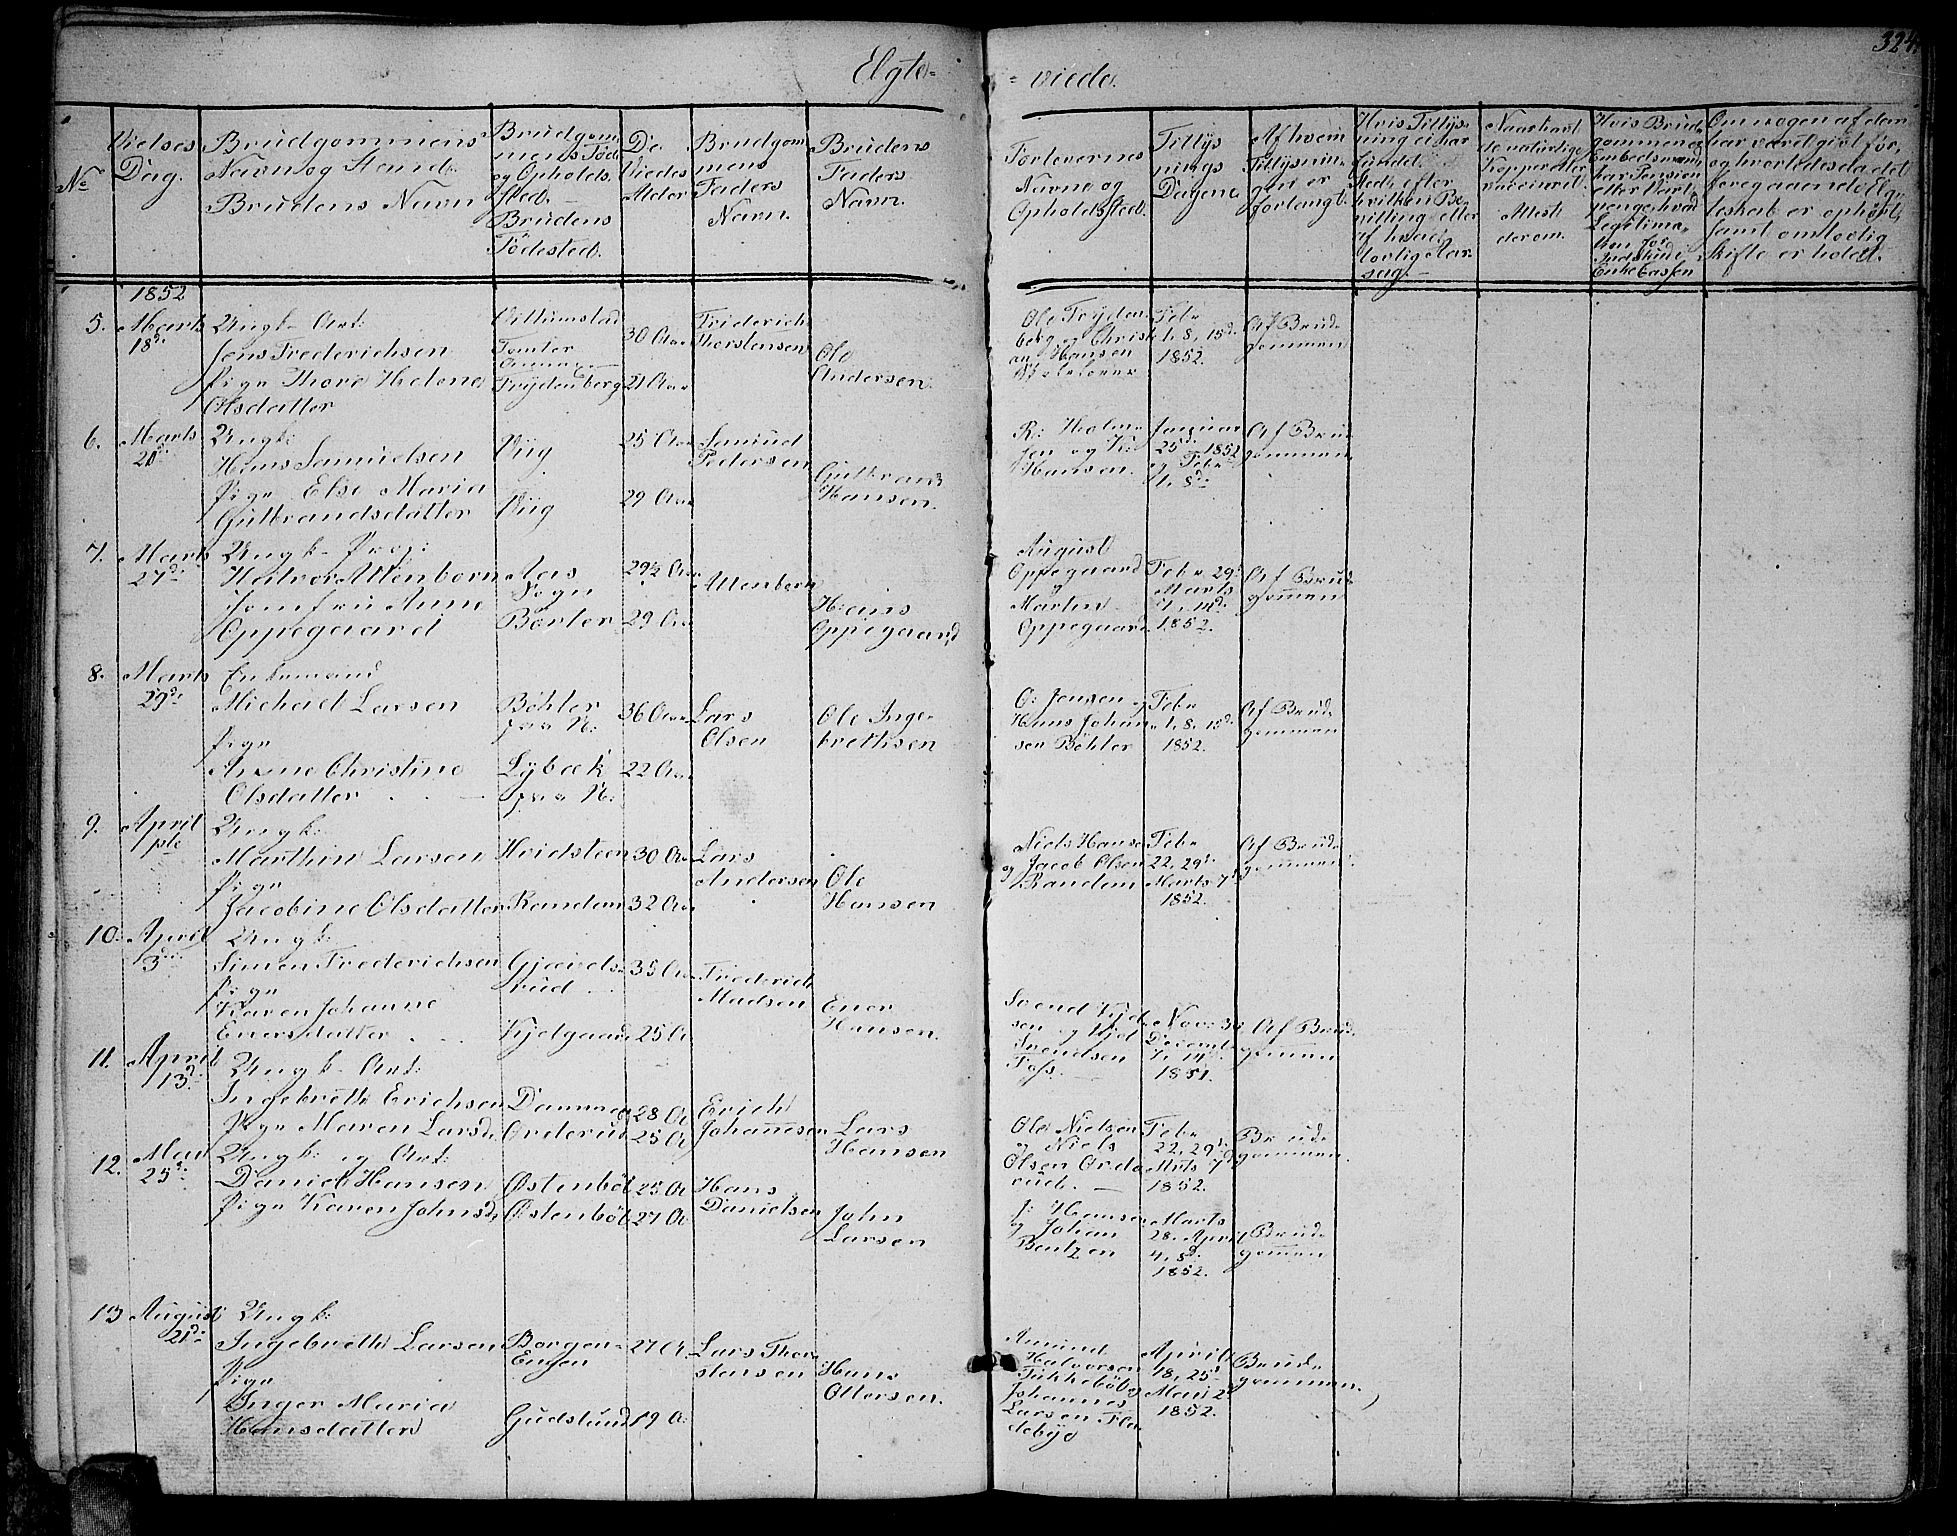 324.
Egte=
= viede.
No
Vielses
Dag.
Brudgommens
Navn og Stand.
Brudens Navn
Brudgom
mens Föde
og Opholds
sted. —
Brudens
Födested.
De
Viedes
Alder
Brudgom
mens
Faders
Navn.
Brudens
Faders
Navn.
Forlovernes
Navne og
Opholdssted.
Tillys
nings
Dagene
Af hvem
Tillysnin
gen er
forlangt.
Hvis Tillys
ning ei har
fundet
Sted, efter
hvilken Be
villing eller
af hvad
lovlig Aar
sag. —
Naar havt
de naturlige
Kopper eller
vaccineret.
Attest
derom.
Hvis Brud
gommen og
Embedsmand
har Pension
eller Vart
penge hvad
Legitima
tion for
Indskud i
Enkecassen
Om nogen af dem
har været givt för,
og hvorledes da det
foregaaende Eg
teskab er ophørt,
samt om lovlig
skifte er holdt.
1852
5. Marts
18de
Ungk. Arb:
Jens Frederichsen
Pige Thore Helene
Olsdatter
Tomter
Frydenberg
30 Aar
21 Aar
Friderich
Thorstensen
Ole
Andersen.
Ole Fryden
berg og Christi
an Hansen
Febr
1, 8, 15de
1852.
Af Brud
gommen
6. Marts
20de
Ungk:
Hans Samuelsen
Pige Else Maria
Gulbrandsdatter
Viig
Viig
25 Aar
29 Aar
Samuel
Pedersen
Gulbrand
Hansen.
R: Halvor
sen og K:
Hansen.
Januar
25de 1852
og Febr
1, 8de
Af Brud
gommen
7. Marts
27de
Ungk. Prop:
Halvor Altenborn
Jomfru Anne
Oppegaard
Aas
Sogn
Börter
29½ Aar
29 Aar
Altenborn
Hans
Oppegaard
August
Oppegaard
og
Martin
Oppegaard
Febr 29de
Marts
7, 14de
1852.
Af Brud
gommen
8. Marts
29de
Enkemand
Michael Larsen
Pige
Anne Christine
Olsdatter
Böhler
fra N:
Lybæk
fra N:
36 Aar
22 Aar
Lars
Olsen
Ole Inge
brethsen
O: Jensen og
Hans Johan
sen Böhler
Febr
1, 8, 15de
1852.
Af Brud
gommen
9. April
1ste
Ungk:
Marthin Larsen
Pige
Jacobine Olsdatter
Hvidsteen
Randem
30 Aar
32 Aar
Lars
Andersen
Ole
Hansen
Niels Hansen
og Jacob Olsen
Randem
Febr
22, 29de
Marts 7de
1852.
Af Brud
gommen
10. April
3de
Ungk:
Simen Frederichsen
Pige
Karen Johanne
Enersdatter
Gjævels
rud
Kjelgaard
35 Aar
25 A
Frederich
Madsen
Ener
Hansen.
Svend Kjel
sen og Kjel
Svendsen
Foss. —
Nov: 30
December
7, 14de
1851.
Af Brud
gommen
11. April
13de
Ungk. Arb:
Ingebreth Erichsen
Pige Maren Larsd.
Dammen
Orderud
28 A
25 A
Erich
Johannesen
Lars
Hansen
Ole Nielsen
og Niels
Olsen Orde
rud. —
Febr
22, 29de
Marts 7de
1852.
Brud
gommen.
12. Mai
25de
Ungk: og Arb:
Daniel Hansen
Pige Karen Johnsd.
Østenböl
Østenböl
25 A
27 A
Hans
Danielsen
John
Larsen
J: Hansen
og Johan
Bentzen
Marts
28. April
4, 8de
1852.
Brud
gommen
13 August
21de
Ungk:
Ingebreth Larsen
Pige
Inger Maria
Hansdatter
Borgen
Engen
Gudslund
27 A.
19 A.
Lars Thor
stensen
Hans
Ottersen.
Amund
Halvorsen
Johannes
Larsen Fla
debye
April
18, 25de
Mai 2de
1852.
Brud
gommen.